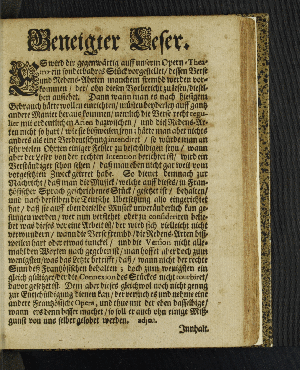 Geneigter Leser.
ES wird der gegenwärtig auff unserm Opern-Thea-
tro ein sonderbahres Stück vorgestellet/ dessen Verse
und Redens-Ahrten manchem frembd werden vor-
kommen/ der/ ohn diesen Vorbericht zu lesen/ dieſel-
ben ansiehet. Dann wann man es nach hiesigem
Gebrauch hätte wollen einrichten/ müsten dieselben auff gantz
andere Manier heraus kommen/ nemlich die Verse recht regu-
lier mit ordentlichen Arten dazwischen/ und die Redens-Ar-
ten nicht so hart/ wie sie bißweilen seyn; hätte man aber nichts
anders als eine Verdeutschung intendiret/ so würde man an
sehr vielen Orten einige Fehler zu beschuldigen seyn/ wann
aber der Leser von der rechten Intention berichtet ist/ wird ein
Verständiger schon sehen/ daß man eben nicht gar weit vom
vorgesetzten Zweck geirret habe. So dienet demnach zur
Nachricht/ daß man die Music/ welche auff dieses/ in Fran-
tzösischer Sprach geschriebenes Stück/ gesetzet ist/ behalten/
und nach derselben die Teutsche Übersetzung also eingerichtet
hat/ daß sie auff eben dieselbe Music unveränderlich kan ge-
sungen werden/ wer nun verstehet oder zu consideriren belie-
bet was dieses vor eine Arbeit ist/ der wird sich vielleicht nicht
verwundern/ wann die Verse frembd/ die Redens-Arten biß-
weilen hart oder etwas dunckel/ und die Version nicht alle-
mahl den Worten nach gegeben ist/ man hoffet aber doch zum
wenigsten/ was das letzte betrifft/ daß/ wann nicht der rechte
Sinn des Frantzösischen behalten/ doch zum wenigsten ein
gleich gültiger/ der die Connexion des Stückes nicht turbiret/
davor gesetzt ist. Dem aber dieses gleichwol noch nicht genug
zur Entschuldigung dienen kan/ der versuch es und nehme eine
andere Frantzösische Opera, und thue mit der eben dasselbige/
wann ers denn besser machet/ so soll er auch ohn einige Miß-
gunst von uns selber gelobet werden. adieu.
Innhalt.